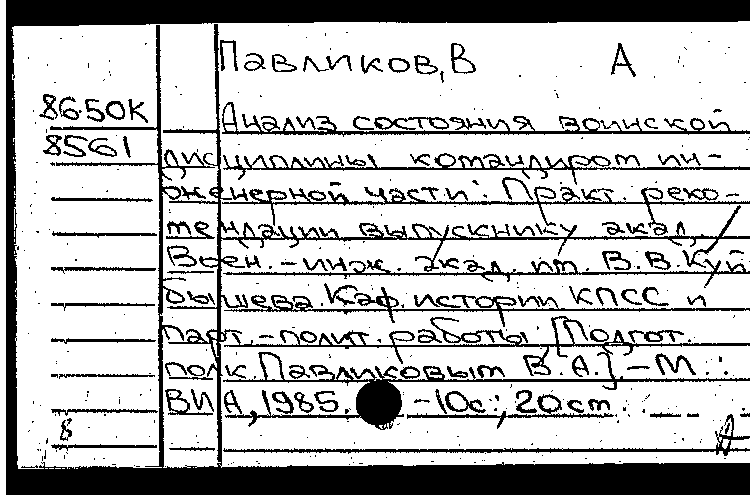 Павликов, В А
8650к Анализ состояния воинской
8561 дисциплины командиром ин-
женерной части: Практ. реко-
мендации выпускнику акад. /
Воен.-инж. акад. им. В.В. Куй
бышева. Каф. истории КПСС и
парт.-полит. работы; [Подгот.
полк. Павликовым В. А.]. – М. :
ВИА, 1985. – 10с.; 20см.
8